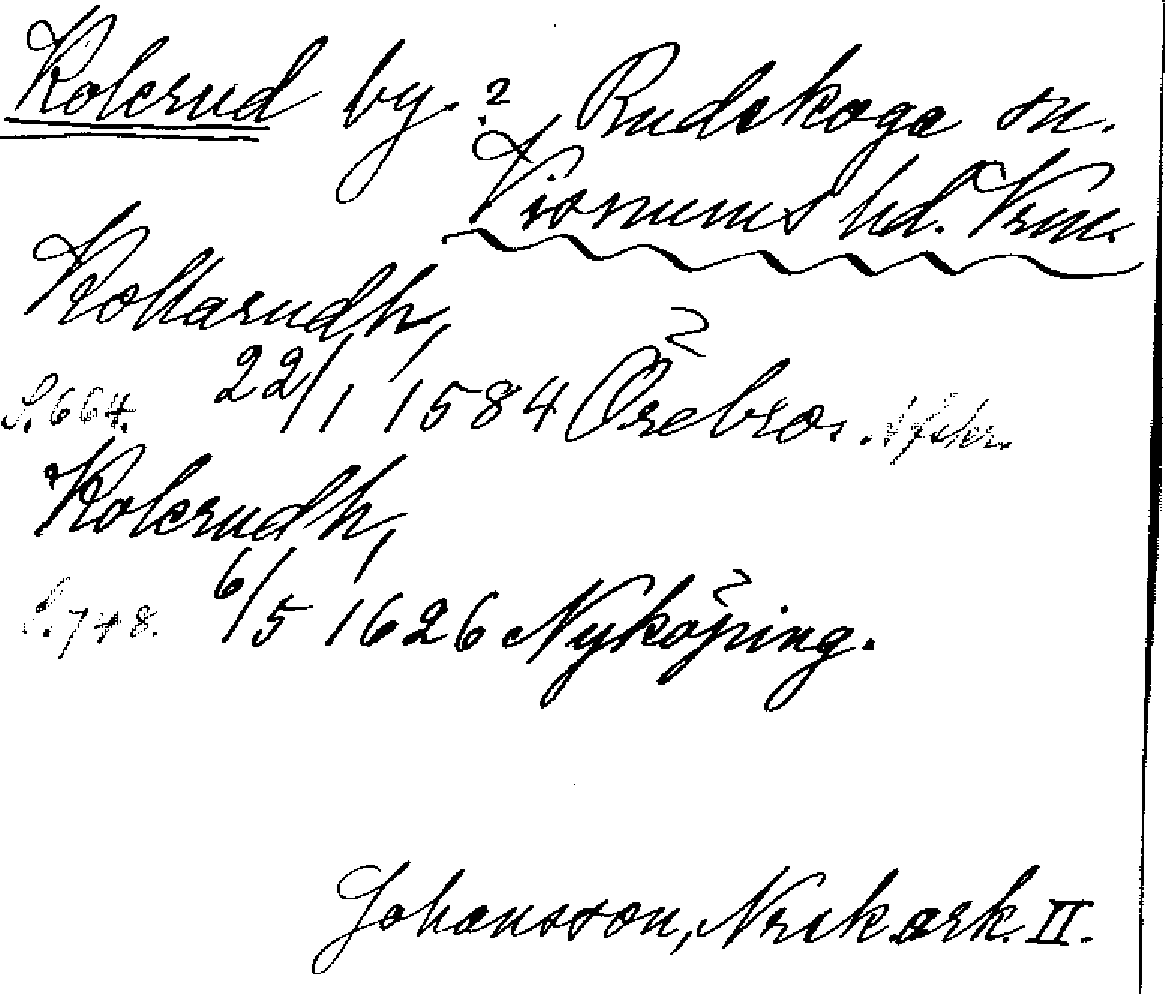 Kolerud by.? Rudskoga sn.
Visnums hd. Vrm.
Kollarudh,
S. 664. 22/1 1584 Örebro. Afskr.
Kolerudh,
S. 748. 6/5 1626 Nyköping.
Johansson, Nrik. ark. II.